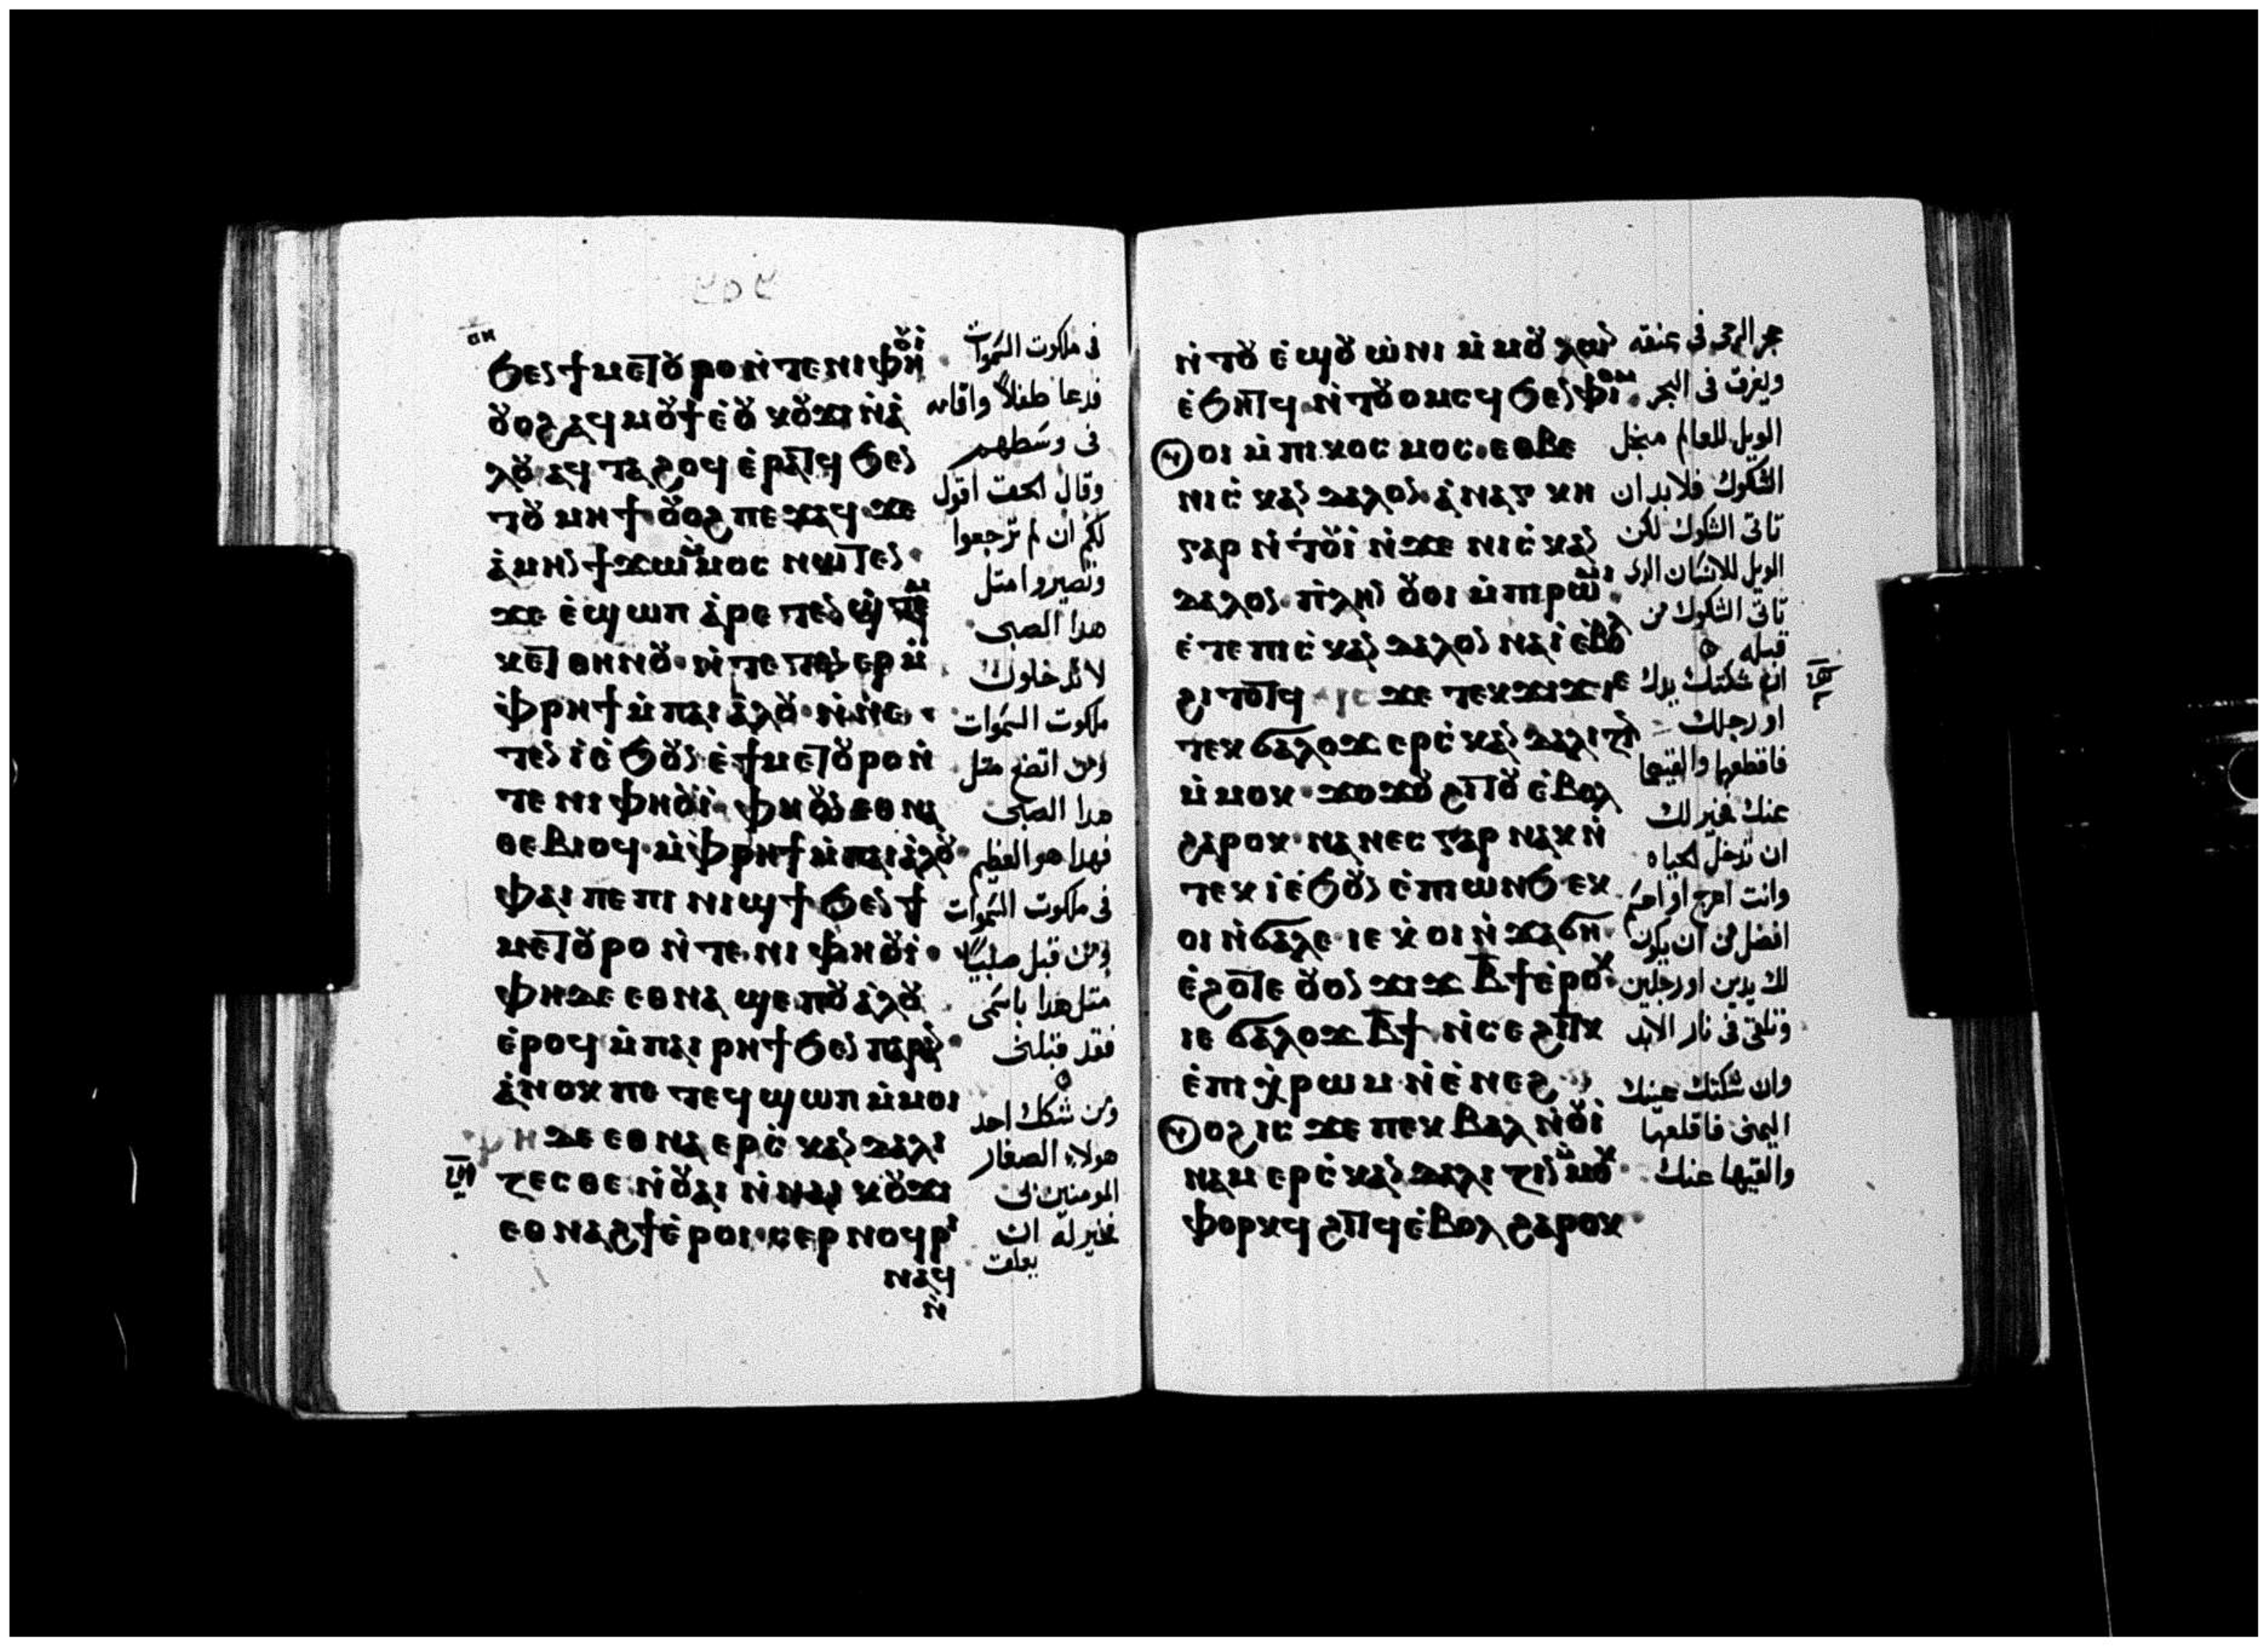 ϧⲉⲛϯⲙⲉⲧⲟⲩⲣⲟ ⲛ̀ⲧⲉⲛⲓⲫⲏⲟⲩⲓ̀
ⲟⲩⲟϩ ⲁϥⲙⲟⲩϯ ⲉ̀ⲟⲩⲕⲟⲩϫⲓ ⲛ̀ⲁ̀
ⲗⲟⲩ ⲁϥⲧⲁϩⲟϥ ⲉ̀ⲣⲁⲧϥ ϧⲉⲛ
ⲧⲟⲩⲙⲏϯ ⲟⲩⲟϩ ⲡⲉϫⲁϥ ϫⲉ
ⲁ̀ⲙⲏⲛ ϯϫⲱ ⲙ̀ⲙⲟⲥ ⲛⲱⲧⲉⲛ
ϫⲉ ⲉ̀ϣⲱⲡ ⲁ̀ⲣⲉⲧⲉⲛϣⲧⲉⲙ
ⲕⲉⲧ ⲑⲏⲛⲟⲩ ⲛ̀ⲧⲉⲧⲉⲛⲉⲣ ⲙ̀
ⲫⲣⲏϯ ⲙ̀ⲡⲁⲓⲁ̀ⲗⲟⲩ ⲛ̀ⲛⲉ
ⲧⲉⲛ ⲓ̀ ⲉ̀ϧⲟⲩⲛ ⲉ̀ϯⲙⲉⲧⲟⲩⲣⲟ ⲛ̀
ⲧⲉ ⲛⲓⲫⲏⲟⲩⲓ̀ ⲫⲏ ⲟⲩⲛ ⲉⲑⲛⲁ
ⲑⲉⲃⲓⲟϥ ⲙ̀ⲫⲣⲏϯ ⲙ̀ⲡⲁⲓⲁ̀ⲗⲟⲩ
ⲫⲁⲓ ⲡⲉ ⲡⲓⲛⲓϣϯ ϧⲉⲛϯ
ⲙⲉⲧⲟⲩⲣⲟ ⲛ̀ⲧⲉ ⲛⲓⲫⲏⲟⲩⲓ̀
ⲫⲏ ⲇⲉ ⲉⲑⲛⲁϣⲉⲡ ⲟⲩⲁ̀ⲗⲟⲩ
ⲉ̀ⲣⲟϥ ⲙ̀ⲡⲁⲓⲣⲏϯ ϧⲉⲛ ⲡⲁⲣⲁⲛ
ⲁ̀ⲛⲟⲕ ⲡⲉ ⲧⲉϥϣⲱⲡ ⲙ̀ⲙⲟⲓ
ⲫⲏ ⲇⲉ ⲉⲑⲛⲁⲉⲣⲥ̀ⲕⲁⲛⲇⲁⲗⲓ
ⲍⲉⲥⲑⲉ ⲛ̀ⲟⲩⲁⲓ ⲛ̀ⲛⲁⲓ ⲕⲟⲩϫⲓ
ⲉⲑⲛⲁϩϯ ⲉ̀ⲣⲟⲓ ⲥⲉⲣⲛⲟϥⲣⲓ
ⲛⲁϥ
ⲛ̀
في ملكوت السموات
فدعا طفلا واقامه
في وسطهم
وقال الحق اقول
لكم ان لم ترجعوا
وتصيروا مثل
هذا الصبي
لا تدخلون
ملكوت السموات
ومن اتضع مثل
هذا الصبي
فهذا هو العظيم
في ملكوت السموات
ومن قبل صبيا
مثل هذا باسمي
فقد قبلني
ومن شكك احد
هولاء الصغار
المومنين بي
فخير له ان
يعلق
ⲛ̀ⲧⲟⲩ ⲉ̀ϣ ⲟⲩⲱ̀ⲛⲓ ⲙ̀ⲙⲟⲩⲗⲟⲛ
ⲉ̀ϧⲏⲧϥ ⲛ̀ⲧⲟⲩⲟⲙⲥϥ ϧⲉⲛ ⲫⲓⲟⲙ
ⲟⲩⲟⲓ ⲙ̀ⲡⲓⲕⲟⲥⲙⲟⲥ ⲉⲑⲃⲉ
ⲛⲓⲥ̀ⲕⲁⲛⲇⲁⲗⲟⲛ ⲁ̀ⲛⲁⲅⲕⲏ
ⲅⲁⲣ ⲛ̀ⲧⲟⲩⲓ̀ ⲛ̀ϫⲉ ⲛⲓⲥ̀ⲕⲁⲛ
ⲇⲁⲗⲟⲛ ⲡⲗⲏⲛ ⲟⲩⲟⲓ ⲙ̀ⲡⲓⲣⲱⲙⲓ
ⲉ̀ⲧⲉ ⲡⲓⲥ̀ⲕⲁⲛⲇⲁⲗⲟⲛ ⲛⲁⲓ̀ ⲉ̀ⲃⲟⲗ
ϩⲓⲧⲟⲧϥ ⲓⲥ ϫⲉ ⲧⲉⲕϫⲓϫ ⲓⲉ
ⲧⲉⲕϭⲁⲗⲟϫ ⲉⲣⲥ̀ⲕⲁⲛⲇⲁⲗⲓⲍⲓⲛ
ⲙ̀ⲙⲟⲕ ϫⲟϫⲟⲩ ϩⲓⲧⲟⲩ ⲉ̀ⲃⲟⲗ
ϩⲁⲣⲟⲕ ⲛⲁⲛⲉⲥ ⲅⲁⲣ ⲛⲁⲕ ⲛ̀
ⲧⲉⲕ ⲓ̀ ⲉ̀ϧⲟⲩⲛ ⲉ̀ⲡⲓⲱⲛϧ ⲉⲕ
ⲟⲓ ⲛ̀ϭⲁⲗⲉ ⲓⲉ ⲕ̀ⲟⲓ ⲛ̀ϫⲁϭⲏ
ⲉ̀ϩⲟⲧⲉ ⲟⲩⲟⲛ ϫⲓϫ ⲃ̅ϯ ⲉ̀ⲣⲟⲕ
ⲓⲉ ϭⲁⲗⲟϫ ⲃ̅ϯ ⲛ̀ⲥⲉϩⲓⲧⲕ
ⲉ̀ⲡⲓⲭ̀ⲣⲱⲙ ⲛ̀ⲉ̀ⲛⲉϩ
ⲟⲩⲟϩ ⲓⲥ ϫⲉ ⲡⲉⲕⲃⲁⲗ ⲛ̀ⲟⲩⲓ̀
ⲛⲁⲙ ⲉⲣⲥ̀ⲕⲁⲛⲇⲁⲗⲓⲍⲓⲛ ⲙ̀ⲙⲟⲕ
ⲫⲟⲣⲕϥ ϩⲓⲧϥ ⲉ̀ⲃⲟⲗ ϩⲁⲣⲟⲕ
حجر الرحى في عنقه
ويغرق في البحر
الويل للعالم من اجل
الشكوك فلا بد ان
تاتي الشكوك لكن
الويل للانسان الذي
تاتي الشكوك من
قبله
ان شكتك يدك
او رجلك
فاقطعها والقيها
عنك فخير لك
ان تدخل الحياه
وانت اعرج او اعسم
افضل من ان يكون
لك يدين او رجلين
وتلقى في نار الابد
وان شكتك عينك
اليمنى فاقلعها
والقيها عنك